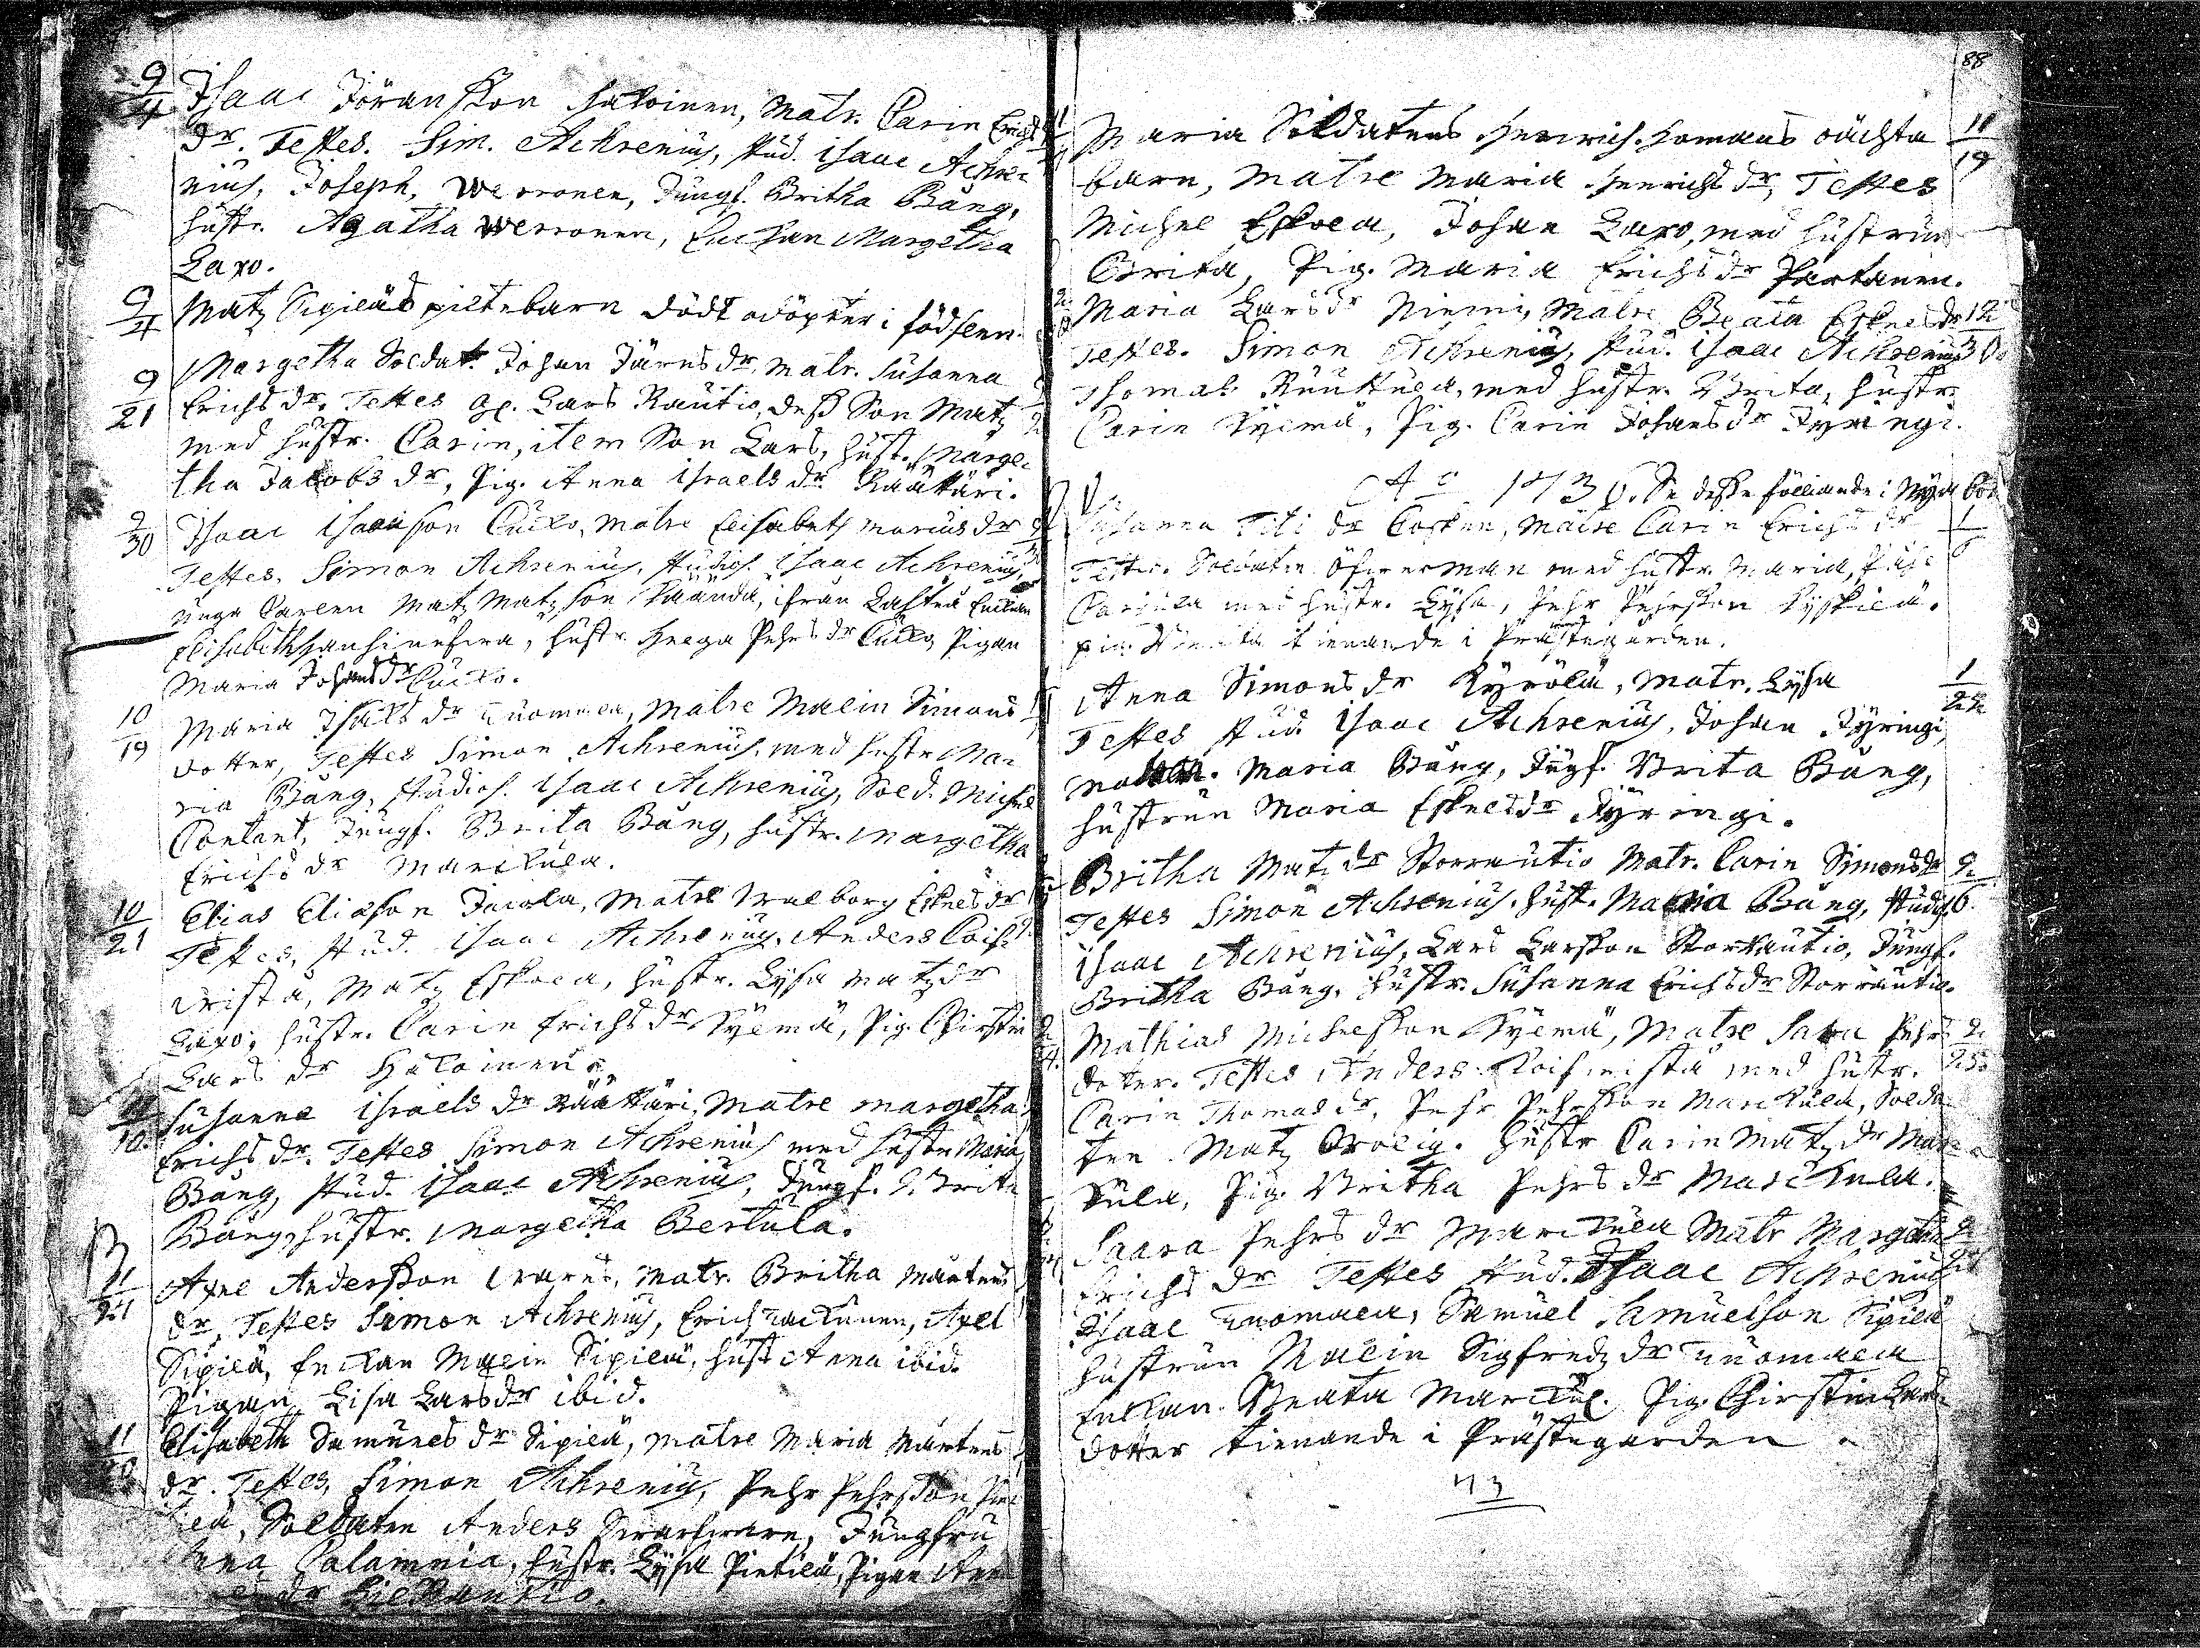 9/4 Isaac Jöransson Hatoinen, Matr. Carin Erichs
dr. Testes. Sim. Achrenius, stud. Isaac Achre-
nius, Joseph, Werronen, Jungf. Britha Bång,
hustr. Agatha Werronen, Enckan Margetha
Laxo.
9/4 Matz Sipiläs piltebarn dödt odöpter i födslenn.
9/21 Margetha Soldat. Johan Järns dr, matr. Susanna
Erichs dr. Testes Lars Rautio, dess Son Matz
med hustr. Carin, item Son Lars, hust. Marge-
tha Jacobs dr, Pig. Anna Israels dr Rääkäri.
9/30 Isaac Isaacson Cucko, Matre Elisabeth Marcus dr
Testes, Simon Achrenius, studios. Isaac Achrenius,
unga Carlen Matz Matzson Kaanda, ifrån Enckan
Elisabeth, hustr. Pehrs dr Cucko, Pigan
Maria Johans dr Cucko.
10/19 Maria Isaks dr Tuomala, Matre Malin Simons
dotter, Testes Simon Achrenius, med hustr Ma-
ria Bång, studios. Isaac Achrenius, Sold. Michel
Contant, Jungf. Brita Bång, hustr. Margetha
Erichs dr Marckula.
10/21 Elias Eliasson Jacola, Matre Walborg Eskels dr
Testes, stud. Isaac Achrenius, Anders Cois-
rista, Matz Eskola, hustr. Lysa Matz dr
Laxo, hustr. Carin Erichs dr Kylmä, Pig. Chirstin
Lars dr Hatoinen.
10 Susanna Israels dr Rääkäri, Matre Margetha
Erichs dr. Testes Simon Achrenius med hustr Maria
Bång, stud. Isaac Achrenius, Jungf. Brita
Bång, hustr. Margetha Bertula.
11/24 Axel Andersson, Matr. Britha Mårtens
dr, Testes Simon Achrenius, Erich Tackunen, Axel
Sipilä, Enckan Malin Sipilä, hust Anna ibid.
Pigan Lisa Lars dr ibid.
11 Elisabeth Samuels dr Sipilä, Matre Maria Mårtens
dr. Testes, Simon Achrenius, Pehr Pehrsson
Soldaten Anders, Jungfru
Calamnia, hustr. Lysa Pietilä, Pigan
dr
88
Maria Soldatens Henrich Homans oächta 11/19
barn, Matre Maria Henrichs dr, Testes
Michel Eskola, Johan Laxo, med hustrun
Brita, Pig. Maria Erichs dr Partanen.
Maria Lars dr Niemi, Matre Beata Eskels dr 12/30
Testes. Simon Achrenius, stud. Isaac Achrenius
Thomas Ruukula, med hustr. Brita, hustr
Carin Kylmä, Pig. Carin Johans dr Jyringi.
Ao 1736. Se desse följande i Nya Bok
Susanna dr Cosken, Matre Carin Erichs dr 1/6
Testes. Soldaten Öfverman med hustr. Maria,
med hustr. Lysa, Pehr Pehrsson
pig. tienande i Prästegården.
Anna Simons dr Kyrölä, Matr. Lysa 1/22
Testes stud. Isaac Achrenius, Johan Jyringi,
Maria Bång, Jugf. Brita Bång,
hustrun Maria Eskels dr Jyringi.
Britha Matz dr Storrautio Matr. Carin Simons dr 2/6
Testes Simon Achrenius, hust. Maria Bång, studios.
Isaac Achrenius, Lars Larsson Storrautio, Jungf.
Britha Bång, hustr. Susanna Erichs dr Storrautio.
Mathias Michelsson Kylmä, Matre Sara Pehrs 2/25
dotter. Testes Anders Coifvistå med hustr.
Carin Thomas dr, Pehr Pehrsson Marckula, Solda-
ten Matz Orolig. hustr Carin Matz dr Marc-
kula, Pig. Britha Pehrs dr Marckula.
Saara Pehrs dr Marckula Matr Margetha
Erichs dr Testes stud. Isaac Achrenius
Isaac Tuomala, Samuel Samuelson Sipilä
hustrun Malin Sigfredz dr Tuomala
Enckan. Beata Marckul. Pig. Chirstin Lars-
dotter tienande i Prästegården